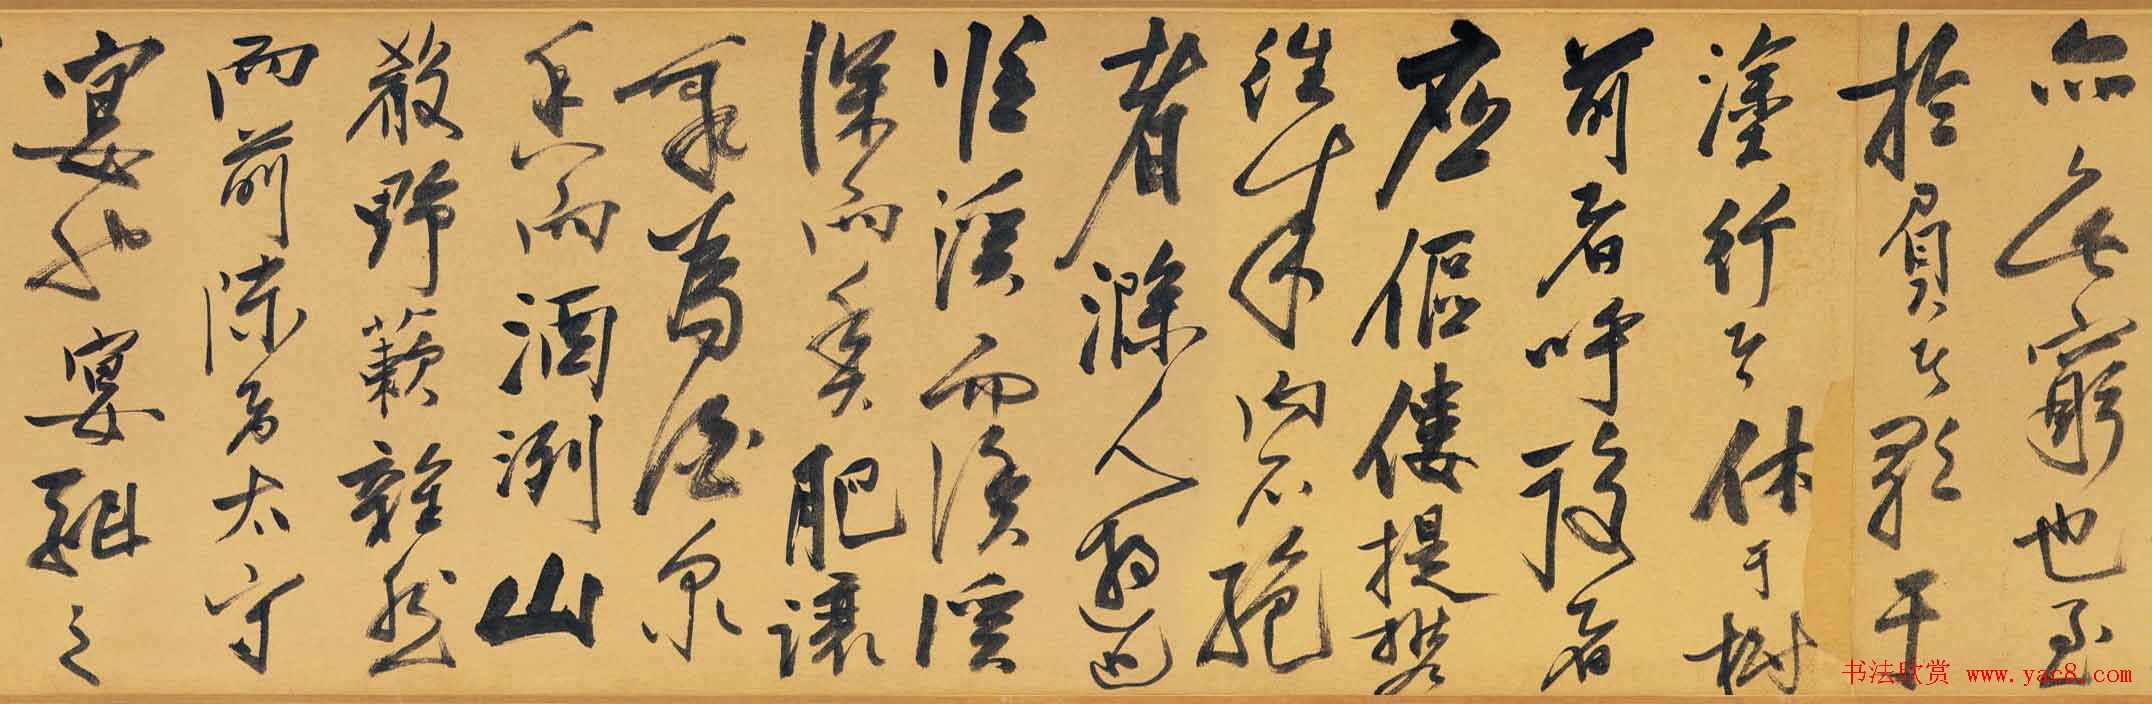 亦無窮也至
於負者歌于
塗行者休于樹
前者呼後者
應傴僂提攜
往來而不絕
者滁人遊也
臨溪而漁溪
深而魚肥釀
泉為酒泉
香而酒洌山
殽野蔌雜然
而前陳者太守
宴也宴酣之
书法欣赏 www.yac8.com